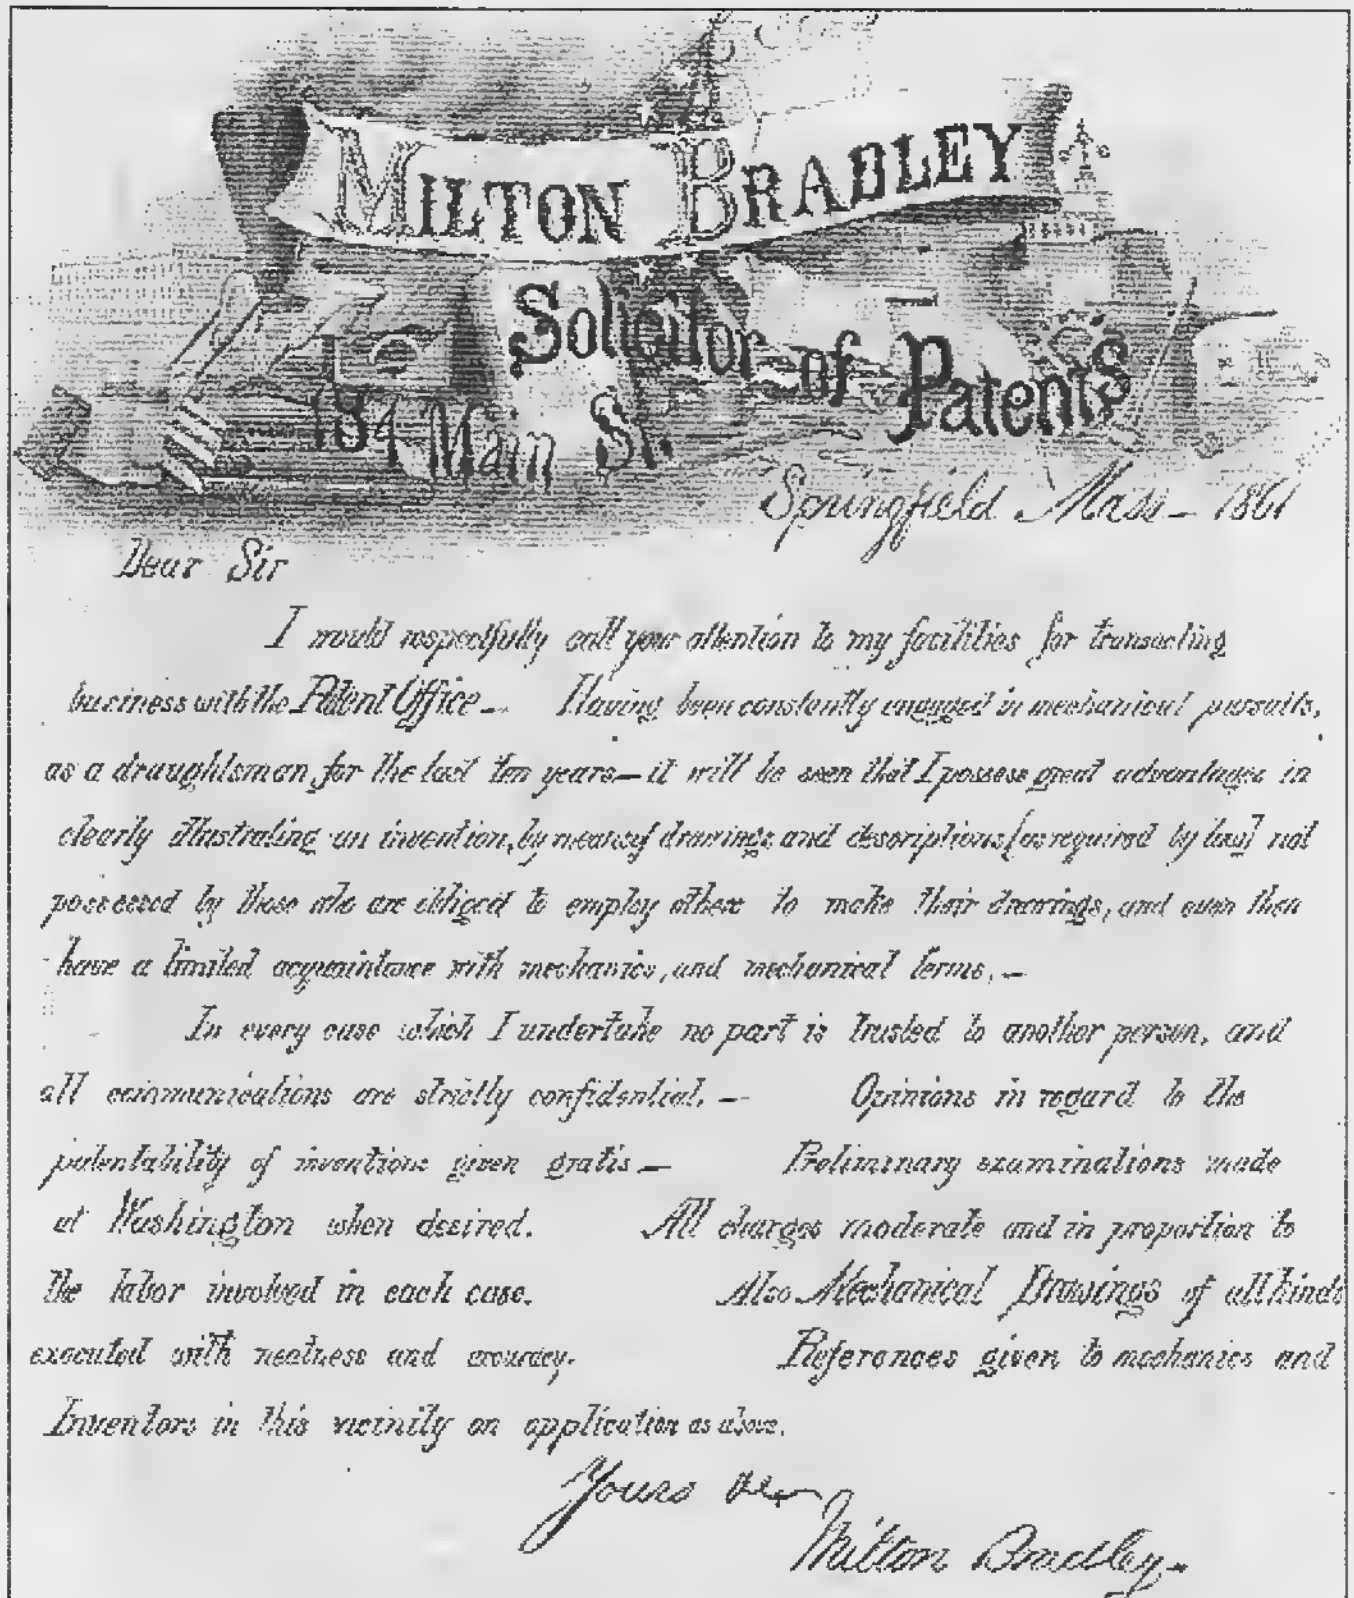 MILTON BRADLEY
Solicitor of Patents
184 Main St.
Springfield Mass – 1861
Dear Sir
I would respectfully call your attention to my facilities for transacting
business with the Patent Office – Having been constantly engaged in mechanical pursuits,
as a draughtsman for the last ten years – it will be seen that I possess great advantages in
clearly illustrating an invention, by means of drawings and descriptions [as required by law] not
possessed by those who are obliged to employ others to make their drawings, and even then
have a limited acquaintance with mechanics, and mechanical terms. –
In every case which I undertake no part is trusted to another person, and
all communications are strictly confidential. – Opinions in regard to the
patentability of inventions given gratis – Preliminary examinations made
at Washington when desired. All charges moderate and in proportion to
the labor involved in each case. Also Mechanical Drawings of all kinds
executed with neatness and accuracy. References given to mechanics and
Inventors in this vicinity on application as above.
Yours
Milton Bradley